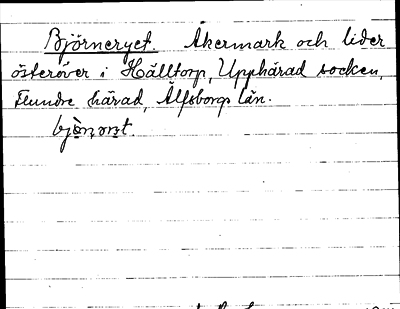 Björneryet. Åkermark och lider
österöver i Hälltorp, Upphärad socken,
Flundre härad, Älfsborgs län.